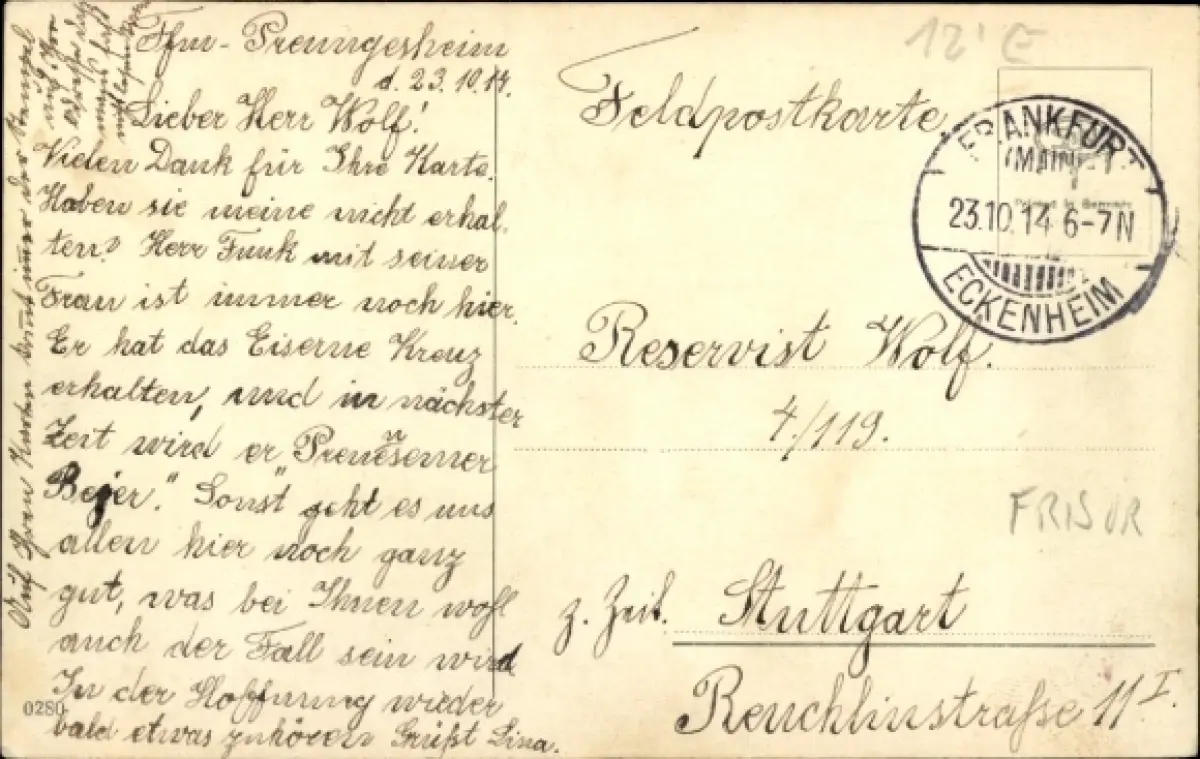 Ffm-Preungesheim
d. 23.10.14.
Lieber Herr Wolf!
Vielen Dank für Ihre Karte.
Haben sie meine nicht erhal-
ten? Herr Funk mit seiner
Frau ist immer noch hier.
Er hat das Eiserne Kreuz
erhalten, und in nächster
Zeit wird er
Sonst geht es uns
allen hier noch ganz
gut, was bei Ihnen wohl
auch der Fall sein wird
In der Hoffnung wieder
bald etwas zuhören Grüßt Lina.
Auf Ihren Karten immer der Stempel
0280
12' E
Feldpostkarte
FRANKFURT
(MAIN)
23.10.14 6-7N
ECKENHEIM
Printed in Germany
Reservist Wolf.
4./119.
FRISUR
z. Zeit. Stuttgart
Reuchlinstraße 11 I.